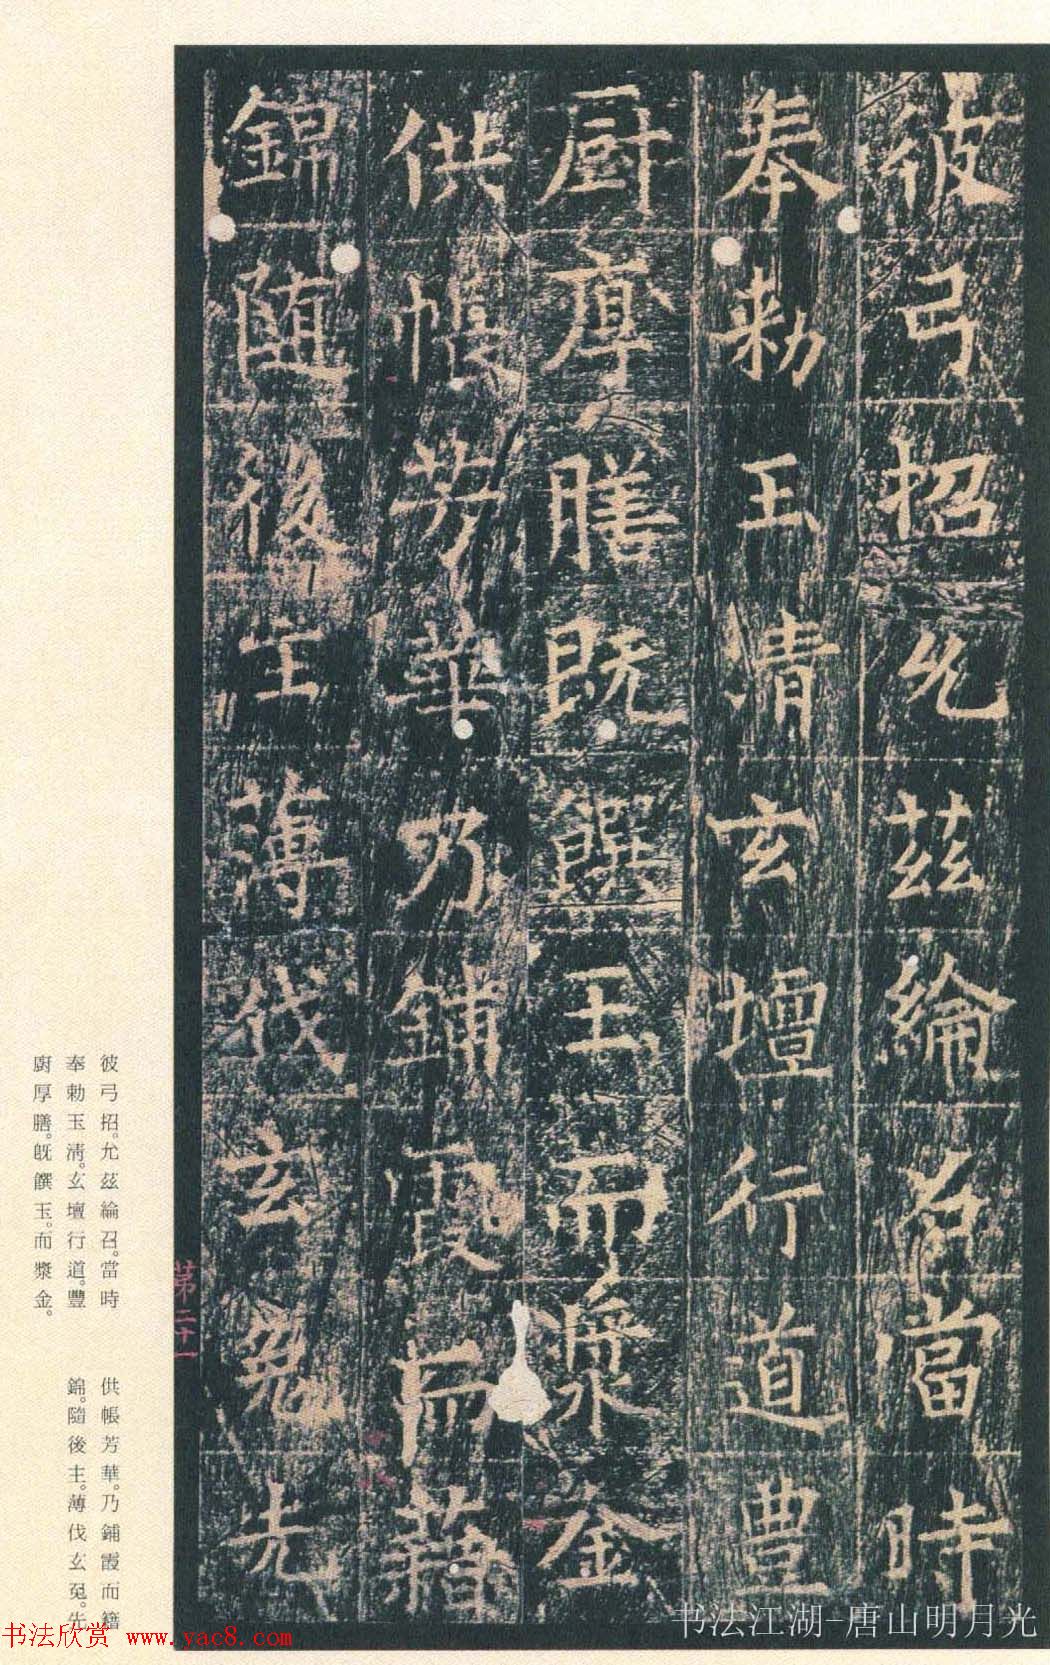 彼弓招允茲綸召當時
奉勅玉清玄壇行道豊
厨厚膳既饌玉而漿金
供帳芳華乃鋪霞而藉
錦随後主薄伐玄菟先
彼弓招。允茲綸召。當時
奉勅玉清。玄壇行道。豐
廚厚膳。既饌玉。而漿金。
供帳芳華。乃鋪霞而籍
錦。隨後主。薄伐玄菟。先
第二十一
书法欣赏 www.yac8.com
书法江湖-唐山明月光